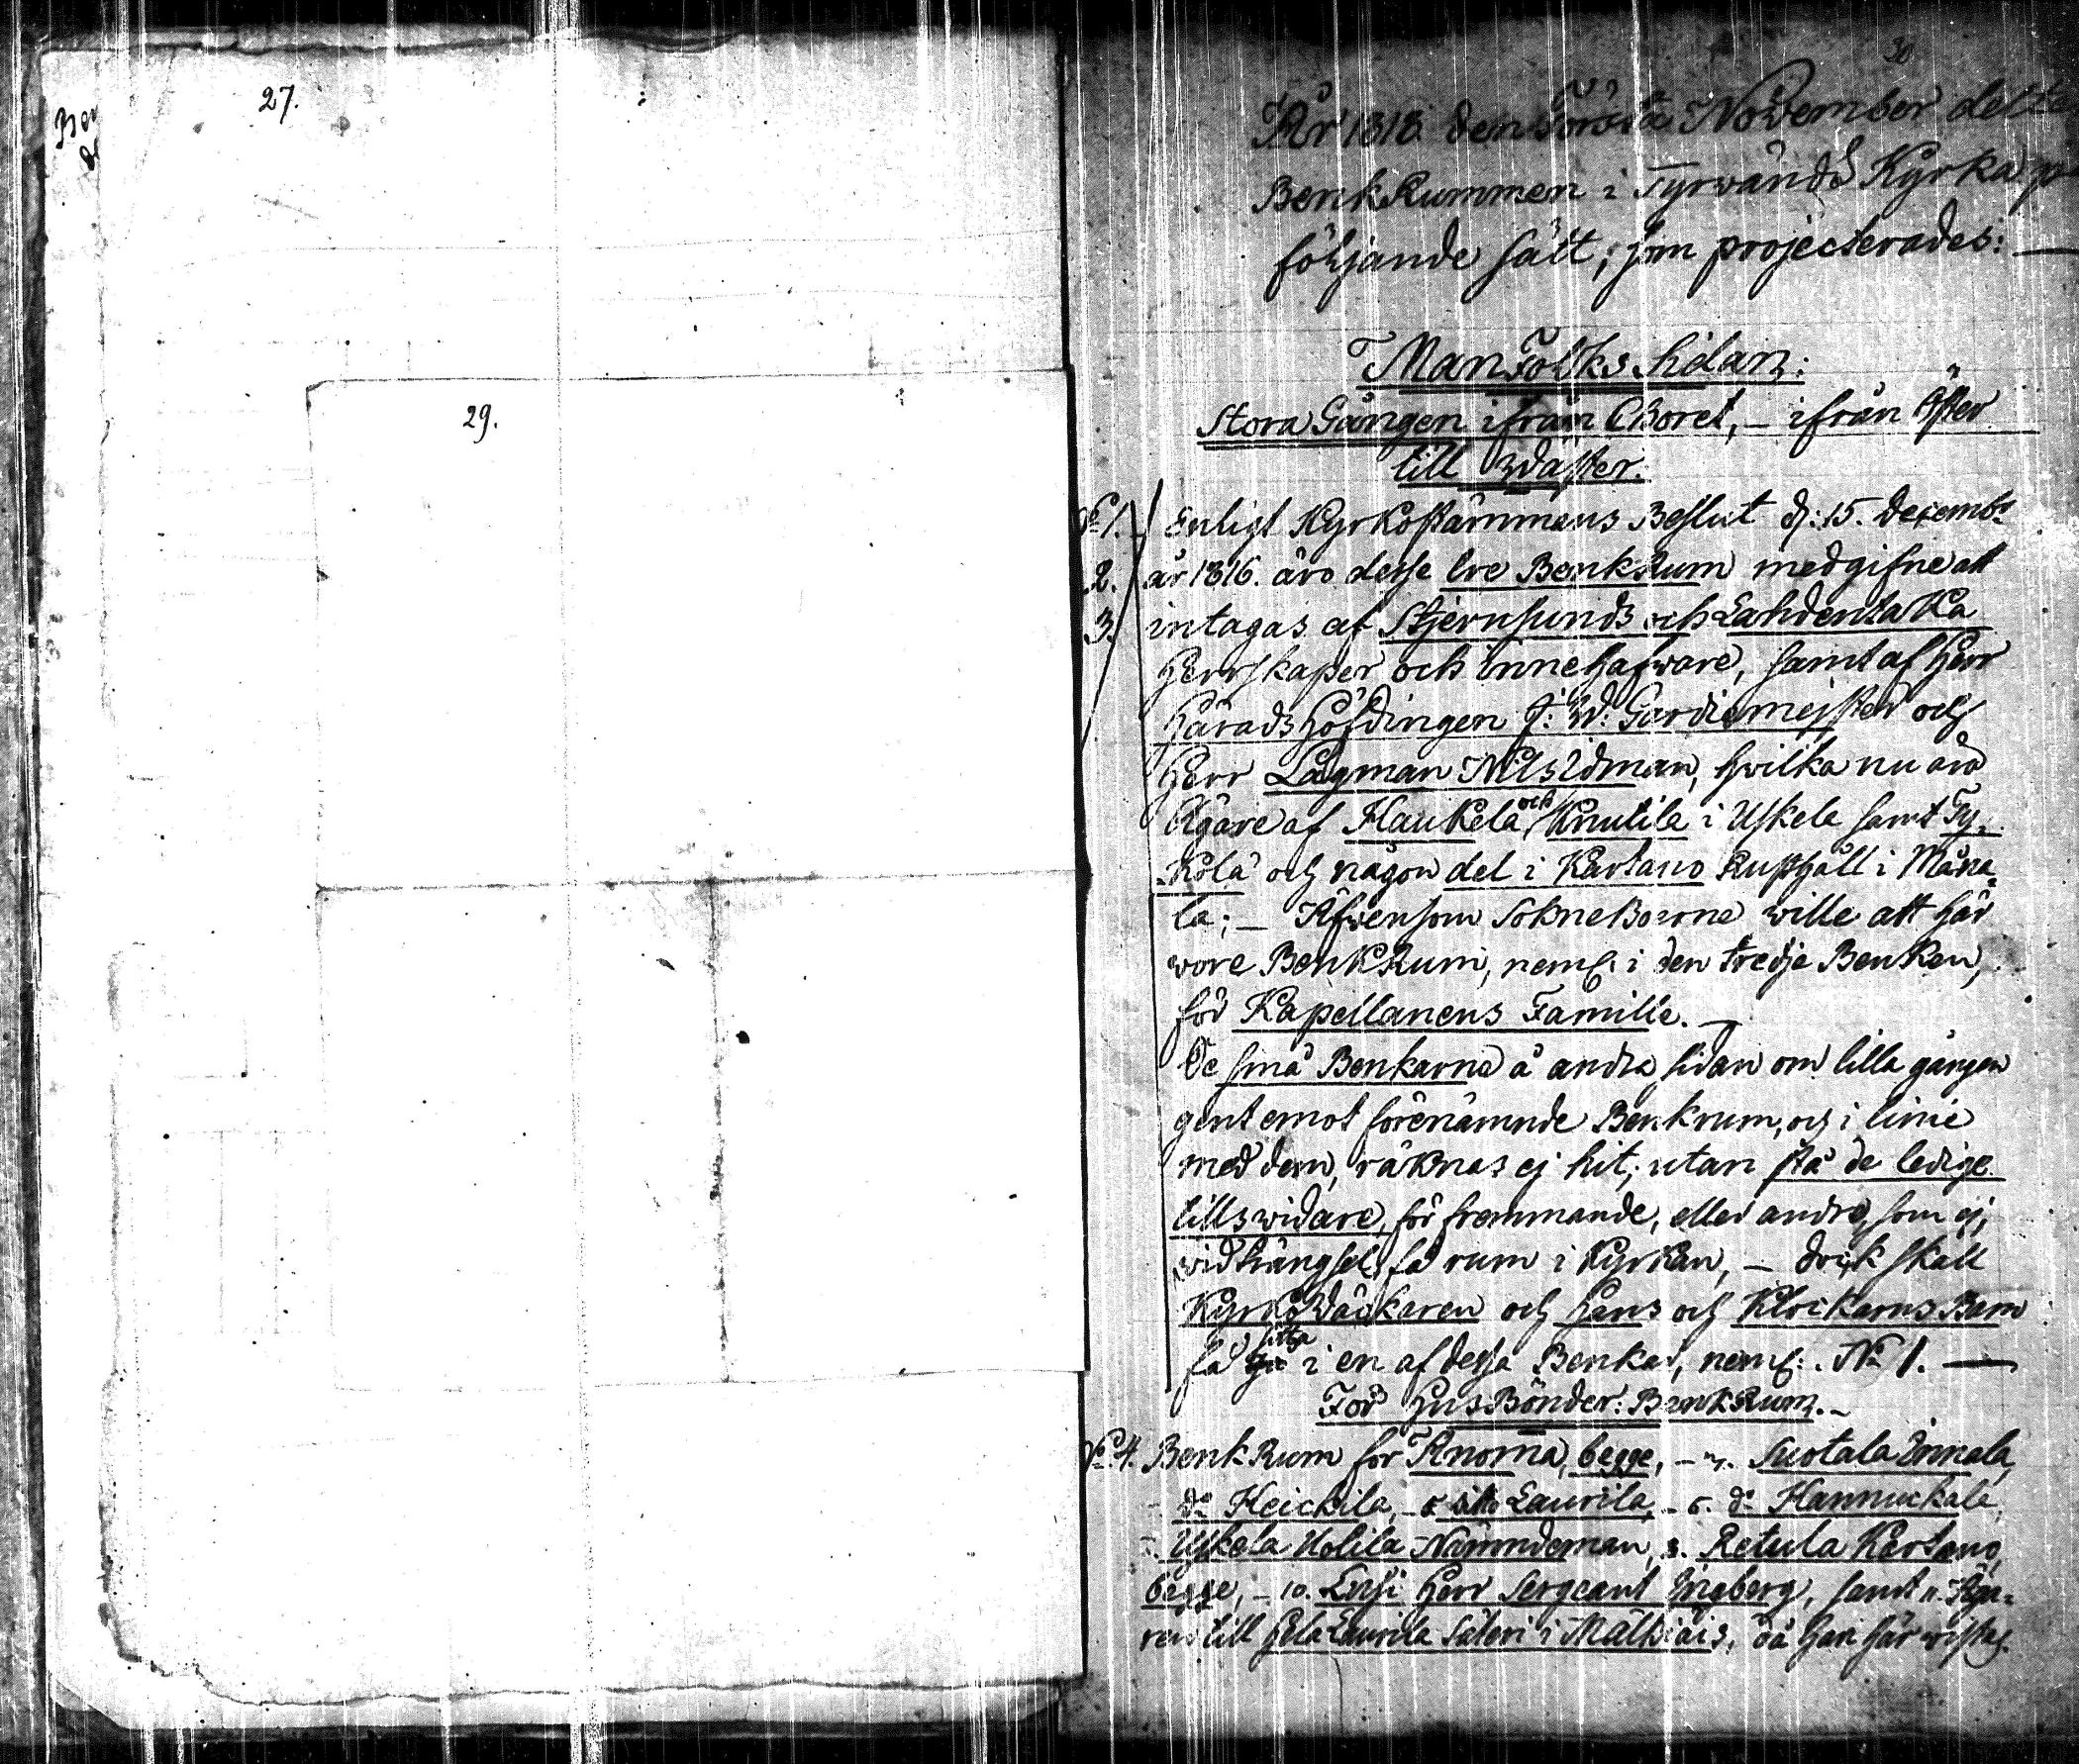 27.
29.
30
År 1818 den Första November delte
BenkRummen i Tyrwändä Kyrka på
följande sätt, som projecterades: —
ManFolks Sidan:
Stora Gången ifrån Choret, – ifrån Öster
till Wäster.
N:o 1. Enligt Kyrkostämmans Beslut d: 15. Decemb:r
2. år 1816. äro desse tre BenkRum medgifne att
3. intagas af Stjernsunds och Lahdentaka
Herrskaper och innehafware, samt af Herr
HäradsHöfdingen J: W: Gardiemeister och
Herr Lagman Nils Idman, hwilka nu äro
Ägare af Haukela och Knutila i Uskela samt Ty-
kolä och någon del i Kartano Rusthåll i Mana-
la; – Äfwensom SokneBoerne wille att här
wore BenkRum, neml. i den tredje Benken,
för Kapellanens Famille. —
De små Benkarne å andra sidan om lilla gången
gent emot förenämnde Benkrum, och i linie
med dem, räknas ej hit; utan stå de ledige
tillswidare, för främmande, eller andre, som ej,
wid trängsel, få rum i Kyrkan, – dock skall
KyrkoWäckaren och Hans och Klockarns Barn
få sitta i en af dessa Benkar, neml: N:o 1. —
För HusBönder: BenkRum. –
N:o 4. BenkRum för Knorna, begge, – Suotala Innala,
d:o Heickila, – ditto Laurila, – 6. d:o Hannuckala
Uskela Uolila Nämndeman, 8. Retula Kartano,
begge, – 10. Ensi Herr Sergeant Ingberg, samt 11. Äga-
ren till Hela Laurila Säteri i Mältiäis, då han här wistas.